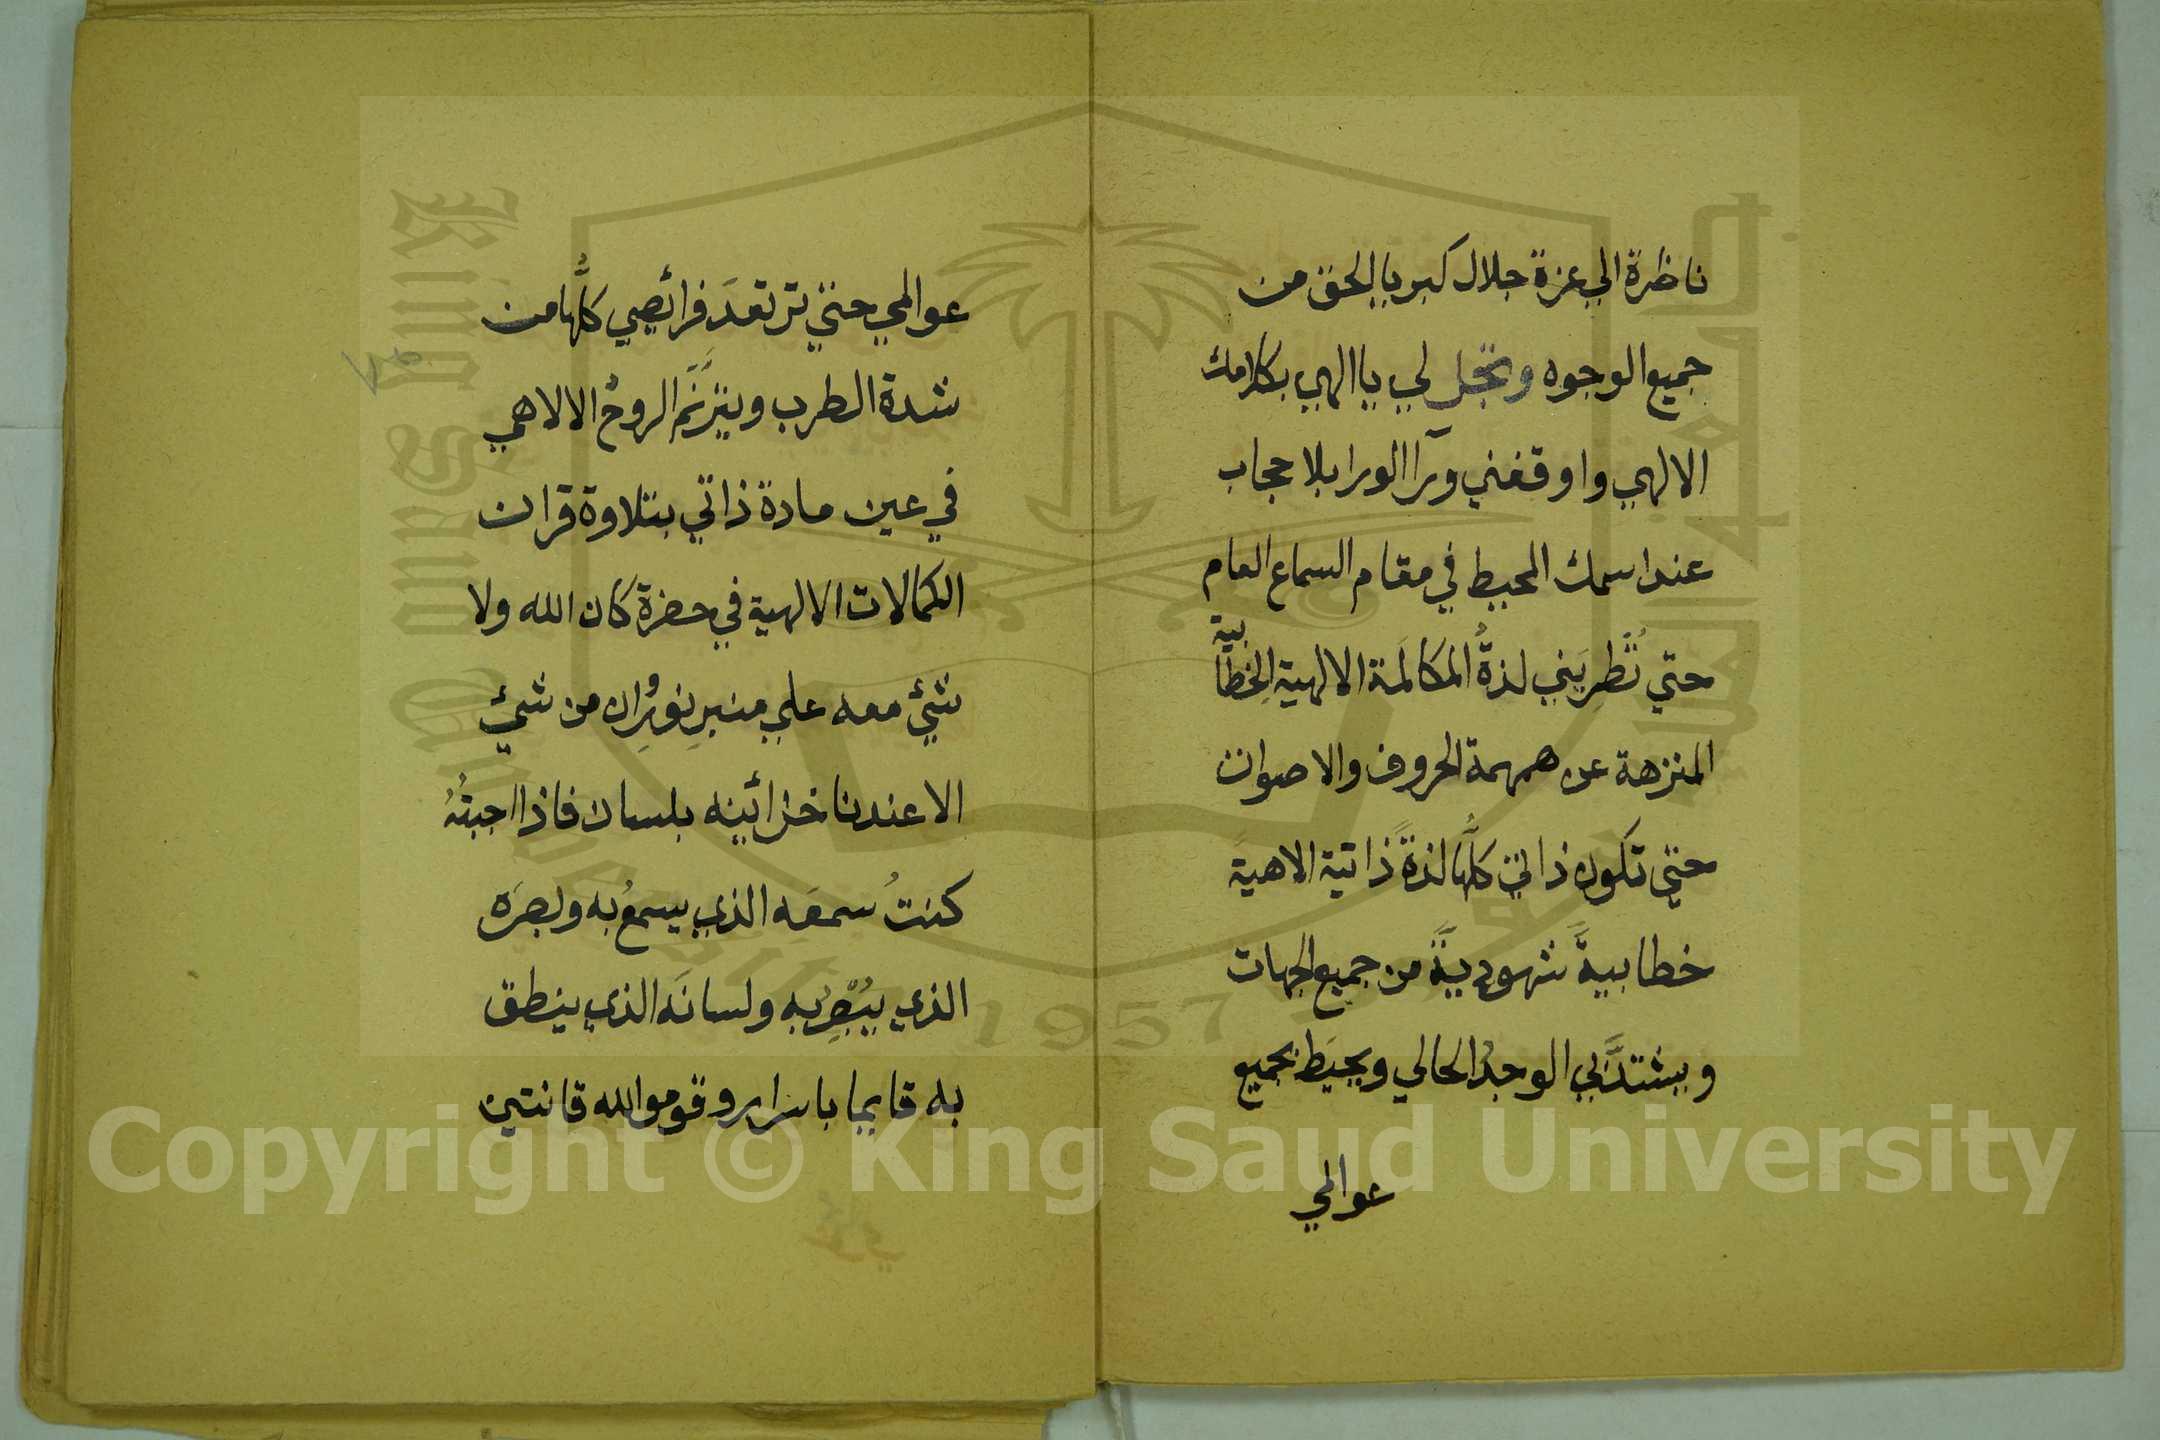 ناظرة الي عزة جلال كبريا الحق من
جميع الوجوه وتجل لي يا الهي بكلامك
الالهي واوقفني ورآ الورا بلا حجاب
عند اسمك المحيط في مقام السماع العام
حتي تُطرِبَني لذةُ المكالَمة الالهية الخِطابية
المنزهة عن همهمة الحروف والاصوات
حتي تكون ذاتي كلُّها لذةً ذاتية الاهيةً
خطابيةً شهوديةً من جميع الجهات
ويشتدَّ بي الوجدُ الحالي ويحيَط بجميع
عوالمي
عوالمي حتي ترتعدَ فرائصي كلُّها من
شدة الطرب ويترنَّمَ الروحُ الالاهمي
في عين مادة ذاتي بتلاوة قران
الكمالات الالهية في حضرة كان الله ولا
شئ معه علي منبرِ نورِ وان من شئ
الا عندنا خزائينه بلسان فاذا احبتُهُ
كنتُ سمعَه الذي يسمعُ به وبصرَه
الذي يُبْصِرُ به ولسانَه الذي ينطق
به قايما باسرار وقوموا لله قانتين
King Saud University
1957
Copyright © King Saud University